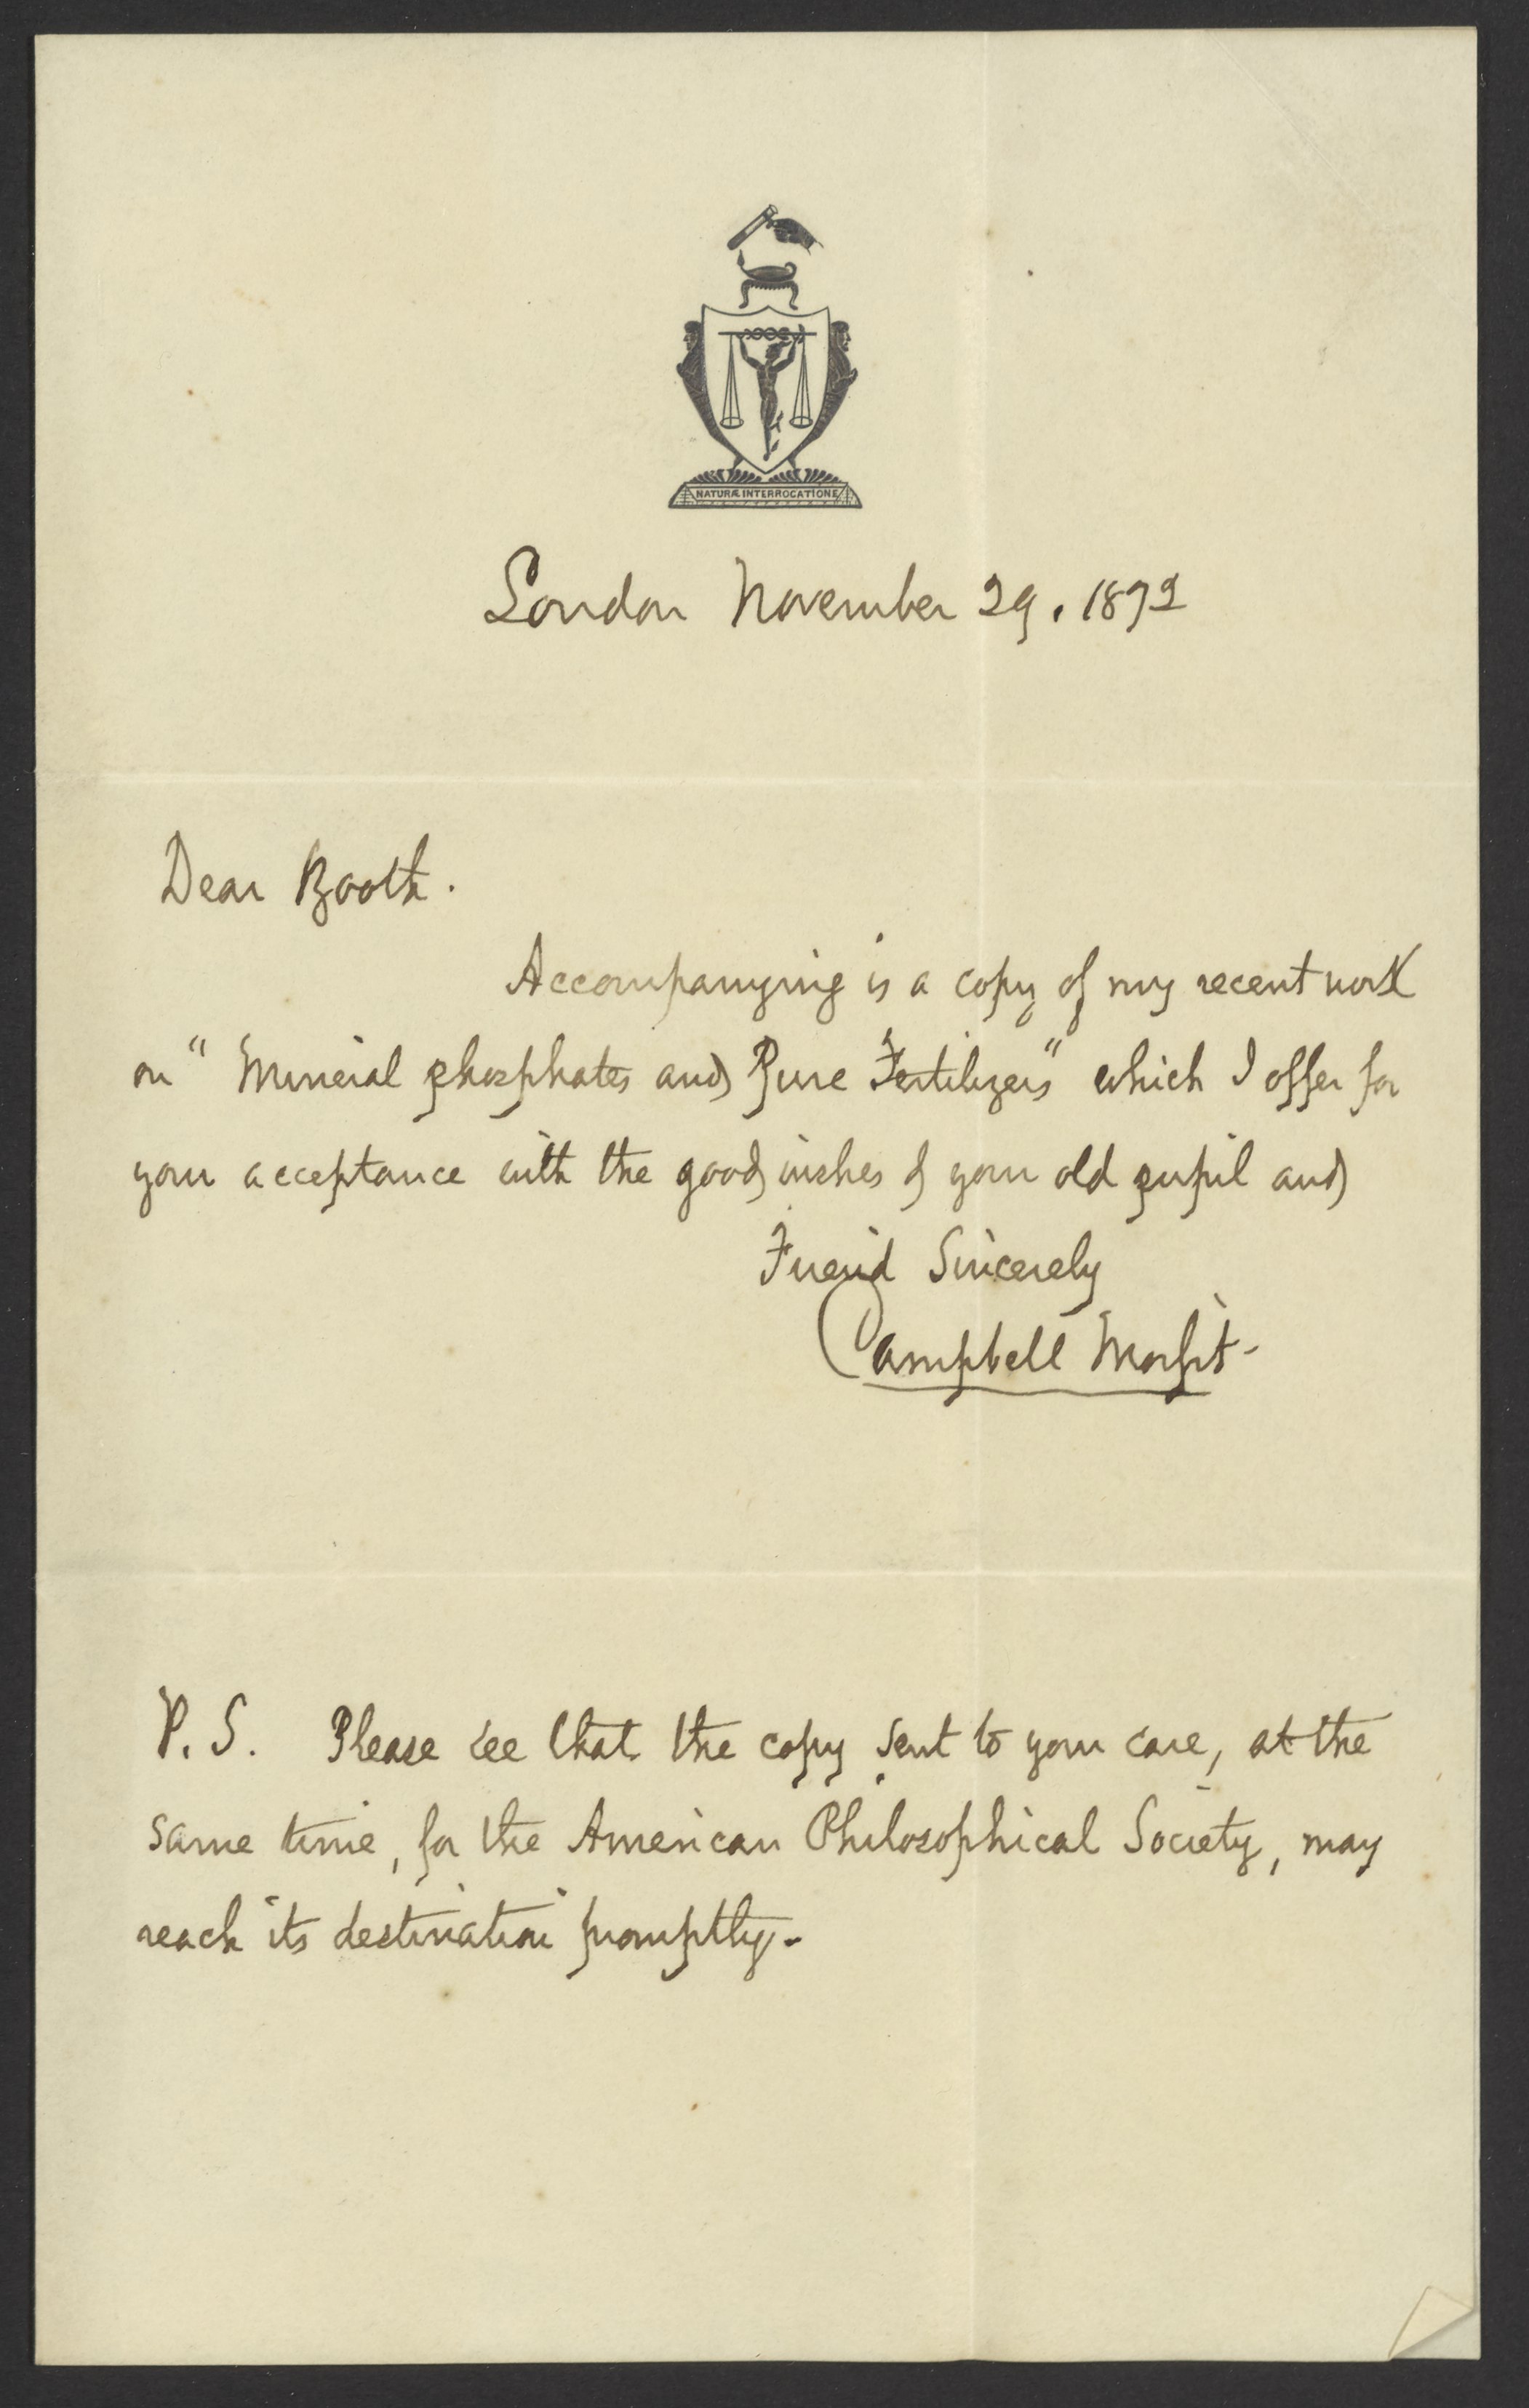 NATURÆ INTERROGATIONE
London November 29. 1872
Dear Booth.
Accompanying is a copy of my recent work
on "Mineral phosphates and Pure Fertilizers" which I offer for
your acceptance with the good wishes of your old pupil and
Friend Sincerely
Campbell Morfit-
P.S. Please see that the copy sent to your care, at the
same time, for the American Philosophical Society, may
reach its destination promptly.-